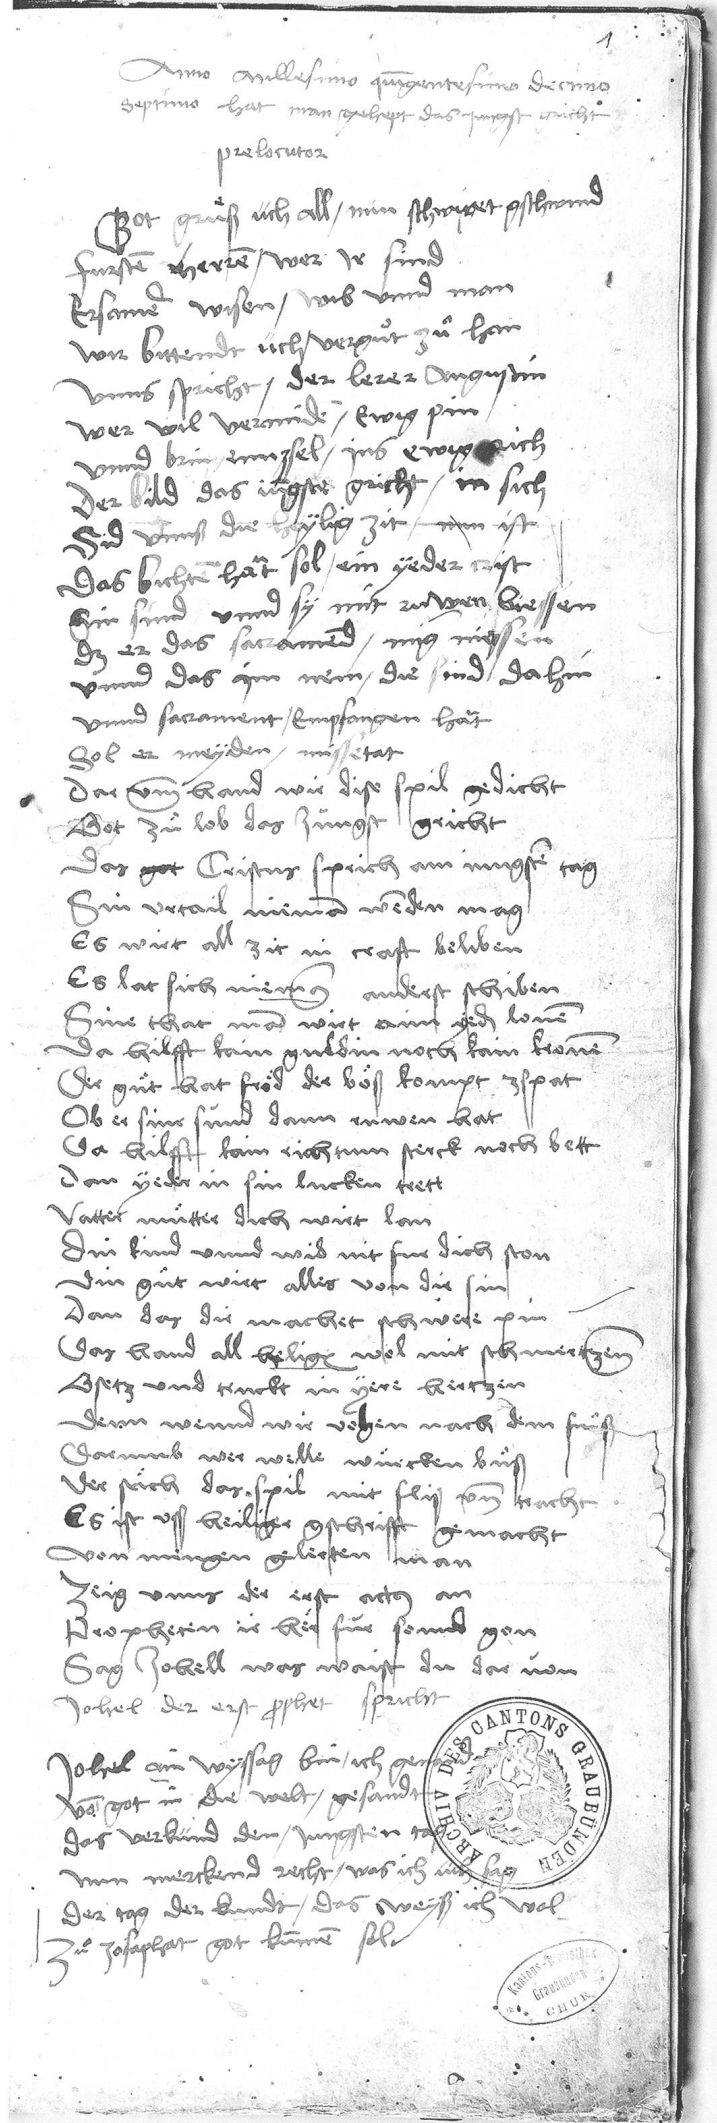 1
Anno Millesimo quīgentesimo decimo
septimo hat man gehept das jungst gricht
prelocutor
Got grůß üch all / nun schwiget gschwind
fürstē herrē / wer ir sind
Ersamē wisen / wib vnnd man
wir bittendt üch / verguͦt zuͦ han
vnns spricht / der lerer Augustin
wer wil vermidē / Ewig pin
vnnd sel / ins ewig rich
Der bild das iūgste gricht / in sich
Sid vnnß die heylig zit / nun ist
Das bichtē hät sol / ein yeder crist
Sin sünd vnnd sy mit rüwen biessen
dz er das sacramend / mög niessen
vnnd das im nem / die sind dahin
vnnd sacrament / Empfangen hät
Sol er meyden / missetat
Dar vm̄ hand wir dise spil gedicht
Got zuͦ lob das Jüngst gricht
Das got Cristus sprich am iungstē tag
Sin vrtail niemā wenden mag
Es wirt all zit in craft beliben
Es lat sich niemā anderst schiben
Sine that mā wirt aim yedē lonē
Da hilfft kain guldin noch kain kronē
Der guͤt hat fröd der böß kompt zspat
Ob er sine sünd dann ruwen hat
Da hilfft kain richtum sterck noch bett
Dan yeder in sin lucken trett
Vatter muͦtter dich wirt lan
Din kind vnnd wib nit fur dich ston
Din guͦt wirt alles von dir sin
Dan das dir machet schwere pin
Das hand all heligē wol mit schmertzē
Gsetz vnd truckt in yere hertzen
Denn wennd wir nach dem fuͤß
Darumb wer welle würcken buͦß
Der säch das spil mit fliß vn̄ tracht
Es ist vss heiliger gschrifft gemacht
von mengen glerten man
Zeig vnns der erst actꝯ an
Propheten ir her für sond gon
Sag Johell was waist du dar von
Johel der erst prophet spricht
Johel ain wyssag bin / ich genant
vō got in die welt / gesandt
das verkünd den / Jungsten tag
nun merckend recht / was ich üch sag
der tag der kundt / das weyß ich wol
Zuͦ Josaphat got kumē sol.
ARCHIV DES CANTONS GRAUBÜNDEN
Kantons-
Graubünden
CHUR